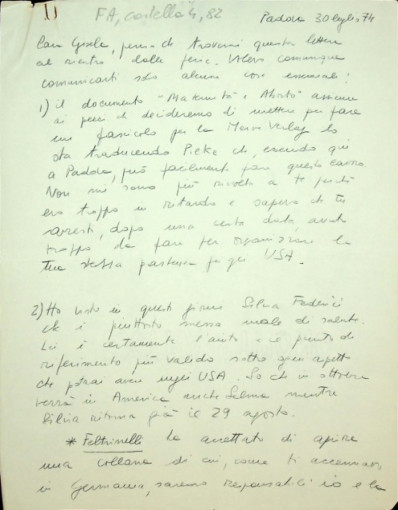 FA, cartella 4, 82
Padova 30 luglio, 74
Cara Gisela, penso che troverai questa lettera
al rientro dalle ferie. Volevo comunque
comunicarti solo alcune cose essenziali:
1) il documento "Maternità e Aborto" assieme
ai pezzi che decideremo di mettere per fare
un fascicolo per la Merve Verlag lo
sta traducendo Peke che, essendo qui
a Padova, può facilmente fare questo lavoro.
Non mi sono più rivolta a te perché
ero troppo in ritardo e sapevo che tu
avresti, dopo una certa data, avuto
troppo da fare per organizzare la
tua stessa partenza per gli USA.
2) Ho visto in questi giorni Silvia Federici
che è piuttosto messa male di salute.
Lei è certamente l'aiuto e il punto di
riferimento più valido sotto ogni aspetto
che potrai avere negli USA. So che in ottobre
verrà in America anche Selma mentre
Silvia ritorna già il 29 agosto.
* Feltrinelli ha accettato di aprire
una collana di cui, come ti accennavo
in Germania, saremo responsabili io e la